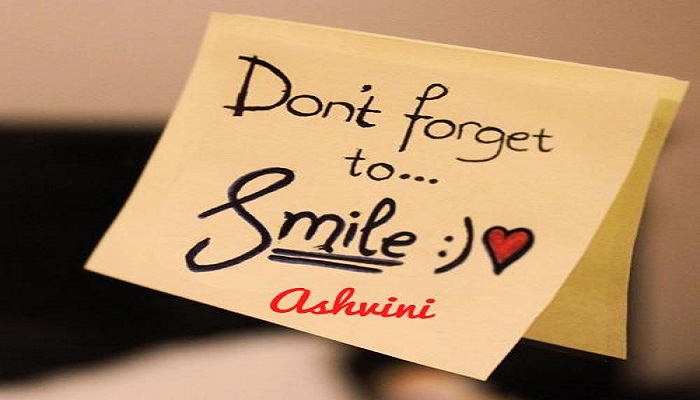 Don't forget
to...
Smile :)
Ashvini